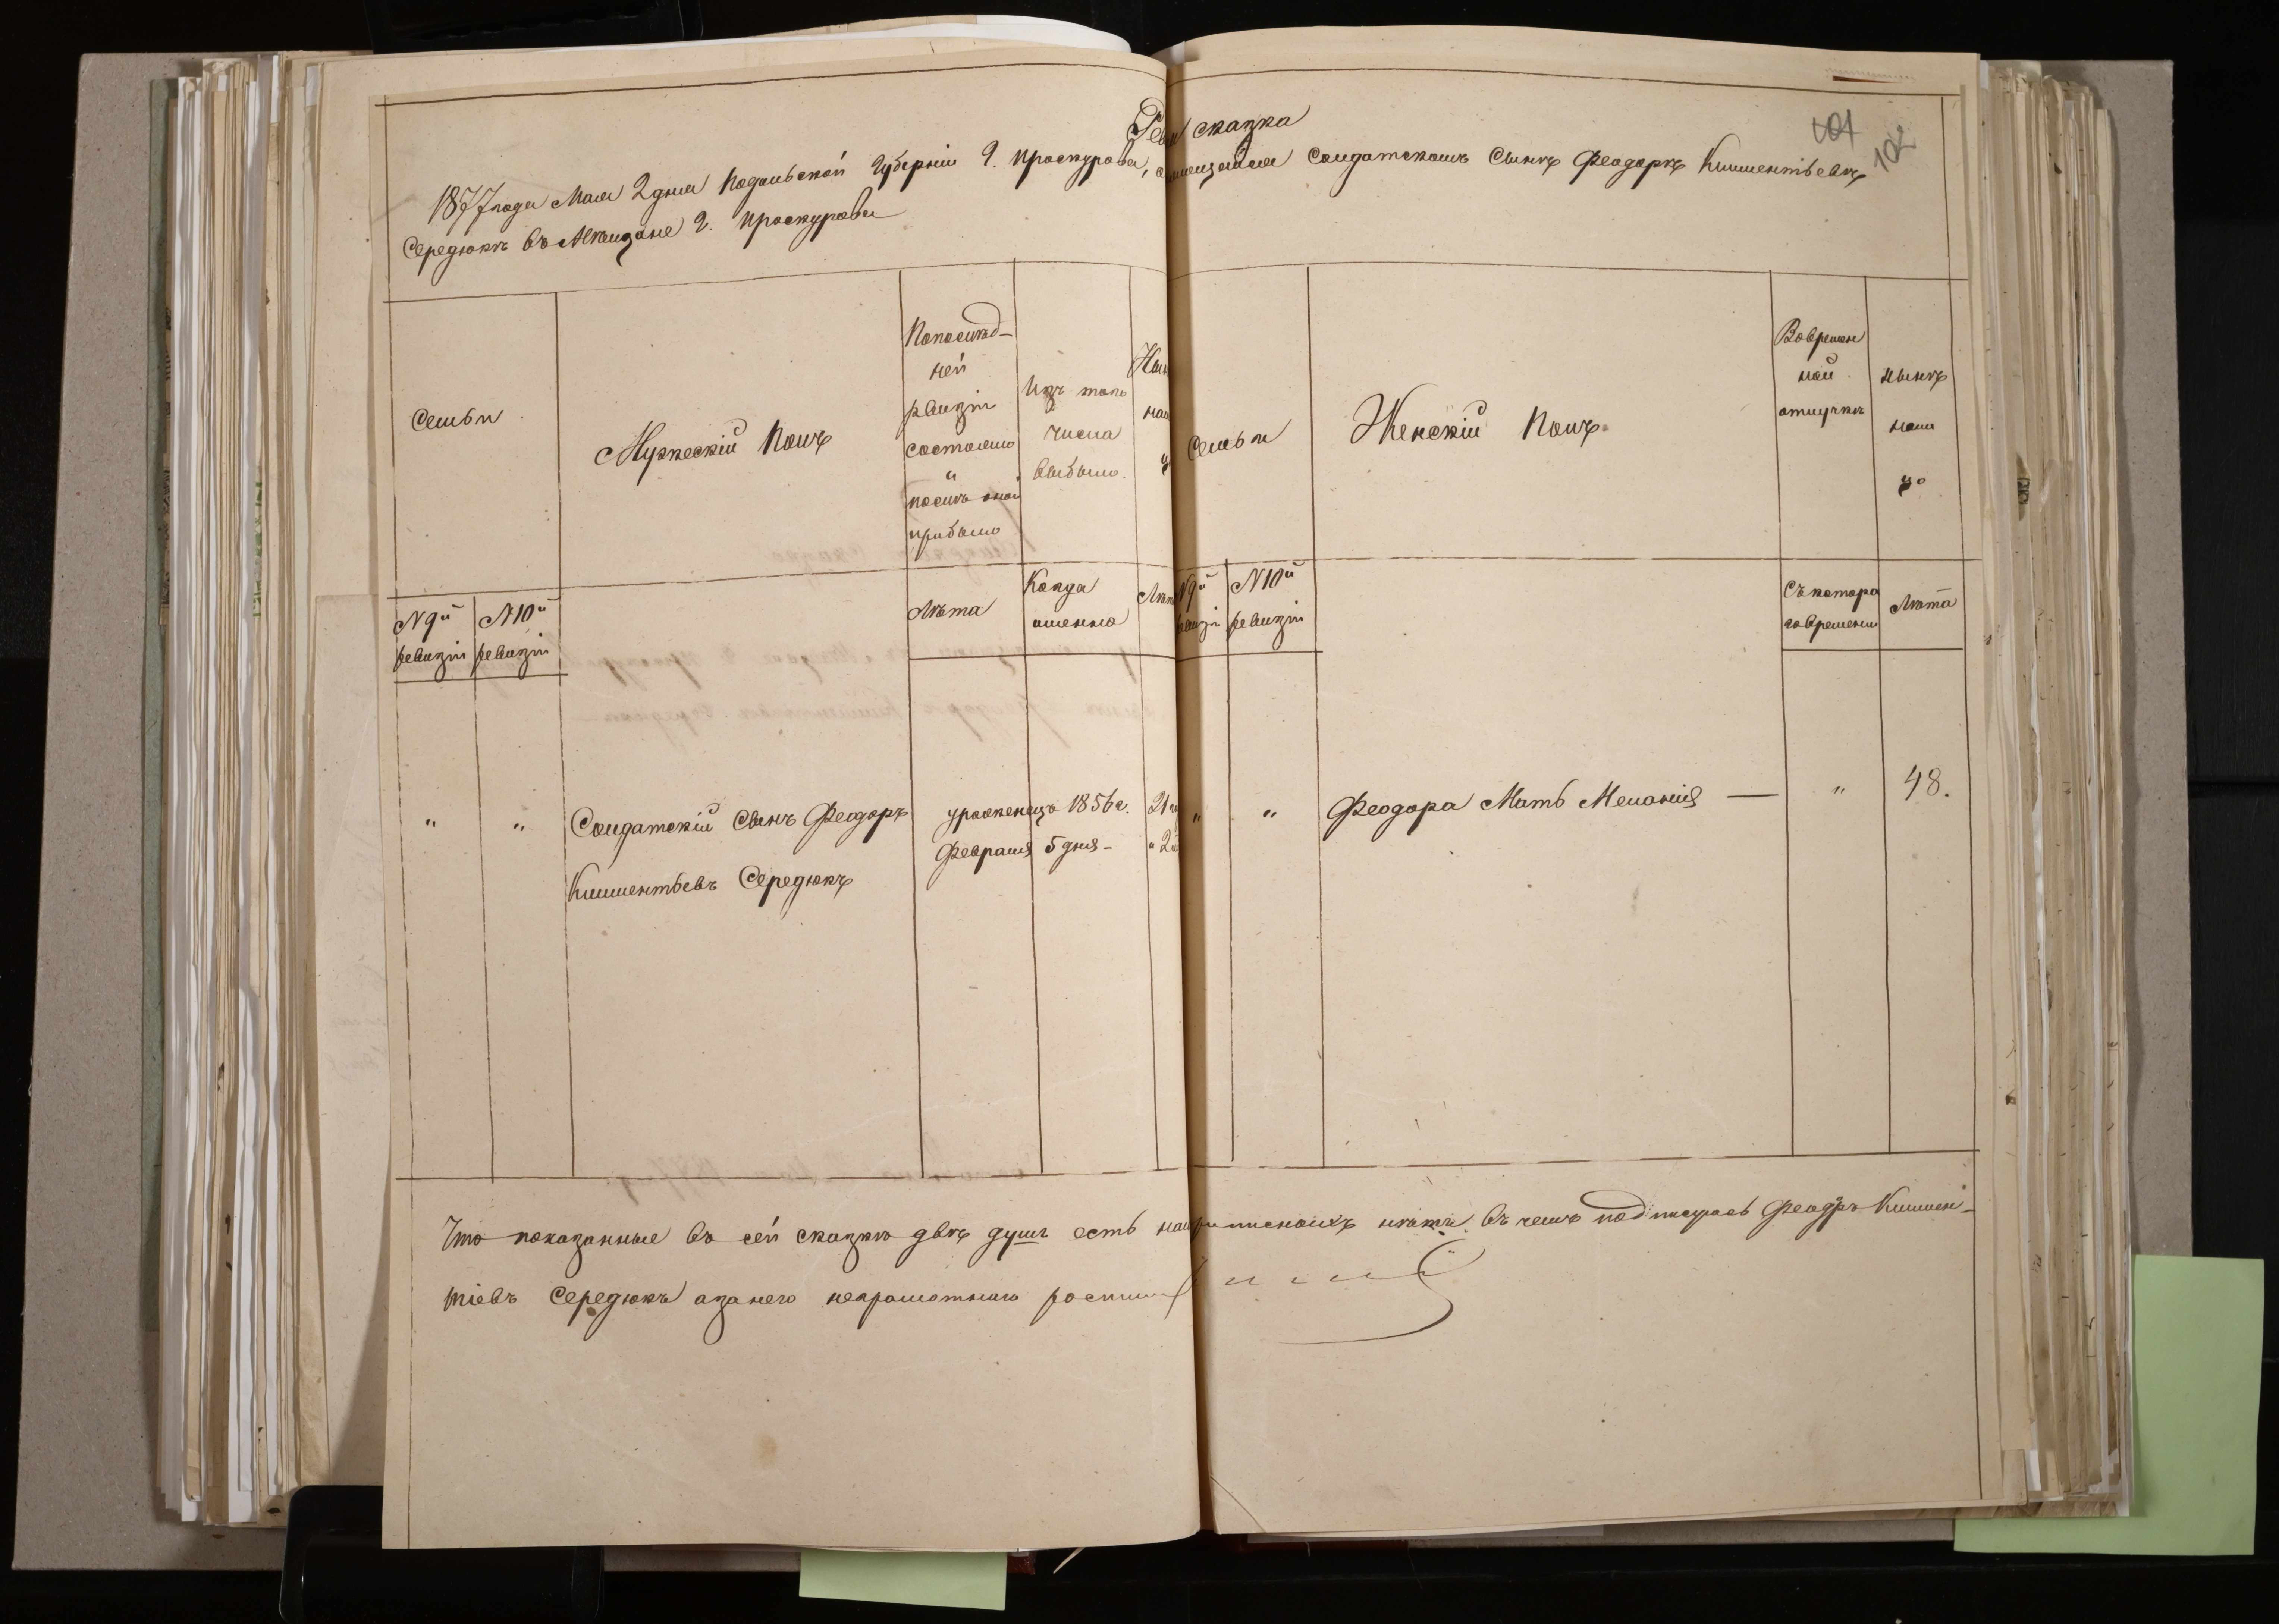 сказка
101
102
1877 года Мая 2 дня Подольской Губерніи г. Проскурова, Солдатскомъ Сынѣ Феодорѣ Климентьевѣ
Середюкѣ въ Мѣщане г. Проскурова
Семьи
Мужескій Полъ
Попослѣд-
ней
ревизіи
состояло
и
послѣ оной
прибыло
Изъ того
числа
выбыло.
Семьи
Женскій Полъ.
Вовремен
ной
отлучкѣ
нынѣ
на
лицо
N 9й
ревизіи
N 10й
ревизіи
Лѣта
Когда
именно
Лѣта
N 9й
ревизіи
N 10й
ревизіи
Съ котора
го времени
Лѣта
"
"
Солдатскій Сынъ Феодоръ
Климентьевъ Середюкъ
уроженецъ 1856 г.
Февраля 5 дня -
21
" 2
"
"
Феодора Мать Меланія —
"
48.
Что показанные въ сей сказкѣ двѣ душъ есть неприписныхъ нѣтъ. въ чемъ подписуюсь Феодоръ Климен-
тіевъ Середюкъ азанего неграмотнаго